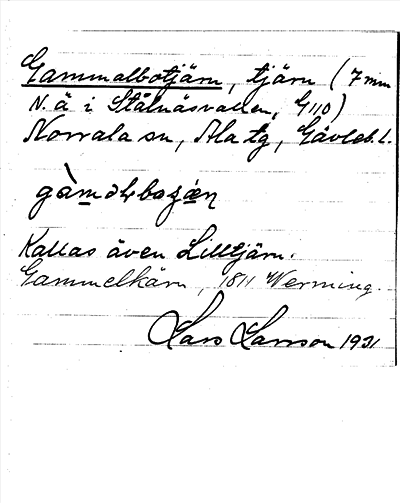 Gammalbotjärn, tjärn (7 mm
N. ä i Stålnäsvallen, G110)
Norrala sn, Ala tg, Gävleb. l.
Kallas även Lilltjärn.
Gammelkärn, 1811 Werming.
Lars Larsson 1931